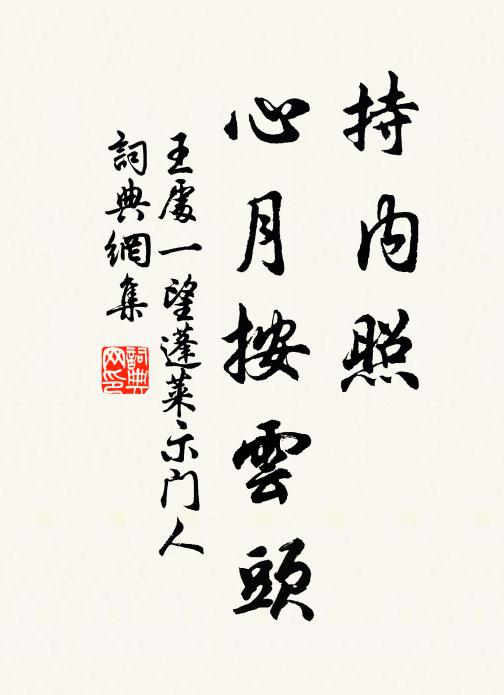 持内照
心月按雲頭
王處一望蓬萊示門人
詞典網集
詞典
网印